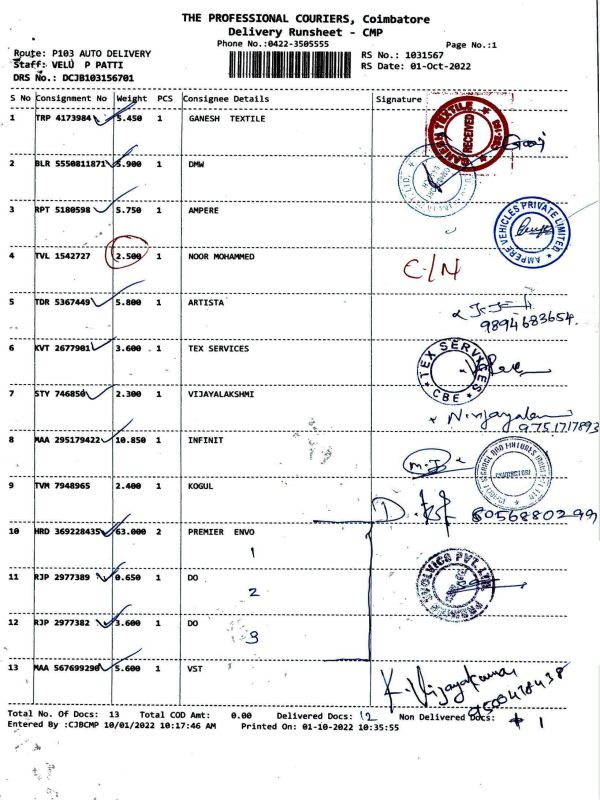 THE PROFESSIONAL COURIERS, Coimbatore
Delivery Runsheet - CMP
Phone No.:0422-3505555
Page No.:1
Route: P103 AUTO DELIVERY
RS No.: 1031567
Staff: VELU P PATTI
RS Date: 01-Oct-2022
DRS No.: DCJB103156701
S No Consignment No Weight PCS Consignee Details Signature
1 TRP 4173984 5.450 1 GANESH TEXTILE
GANESH TEXTILE RECEIVED
2 BLR 5550811871 5.900 1 DMW
3 RPT 5180598 5.750 1 AMPERE
AMPERE VEHICLES PRIVATE LIMITED
4 TVL 1542727 2.500 1 NOOR MOHAMMED C/N
5 TDR 5367449 5.800 1 ARTISTA
9894683654
6 KVT 2677901 3.600 1 TEX SERVICES
TEX SERVICES CBE
7 STY 746850 2.300 1 VIJAYALAKSHMI
9751717893
8 MAA 295179422 10.850 1 INFINIT
9 TVM 7948965 2.400 1 KOGUL
10 HRD 369228435 63.000 2 PREMIER ENVO
1
11 RJP 2977389 0.650 1 DO
2
12 RJP 2977382 3.600 1 DO
3
13 MAA 567699290 5.600 1 VST
K. Vijayakumar
Total No. Of Docs: 13 Total COD Amt: 0.00 Delivered Docs: 12 Non Delivered Docs: 1
Entered By :CJBCMP 10/01/2022 10:17:46 AM Printed On :01-10-2022 10:35:55